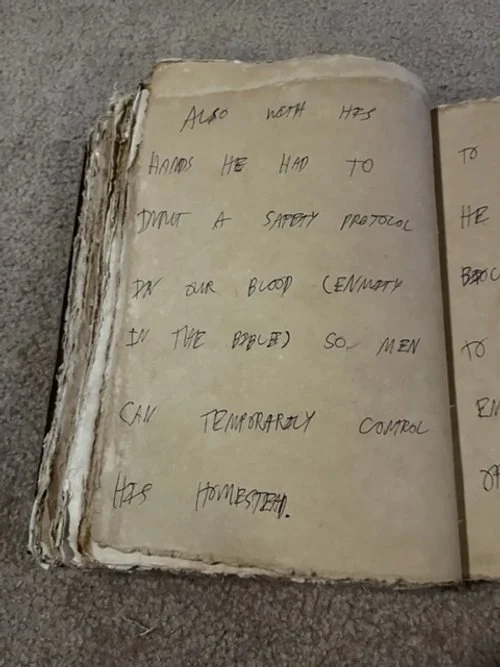 ALSO WITH HIS
HANDS HE HAD TO
INPUT A SAFETY PROTOCOL
IN OUR BLOOD (ENMITY
IN THE BIBLE) SO MEN
CAN TEMPORARILY CONTROL
HIS HOMESTEAD.
TO
HE
TO